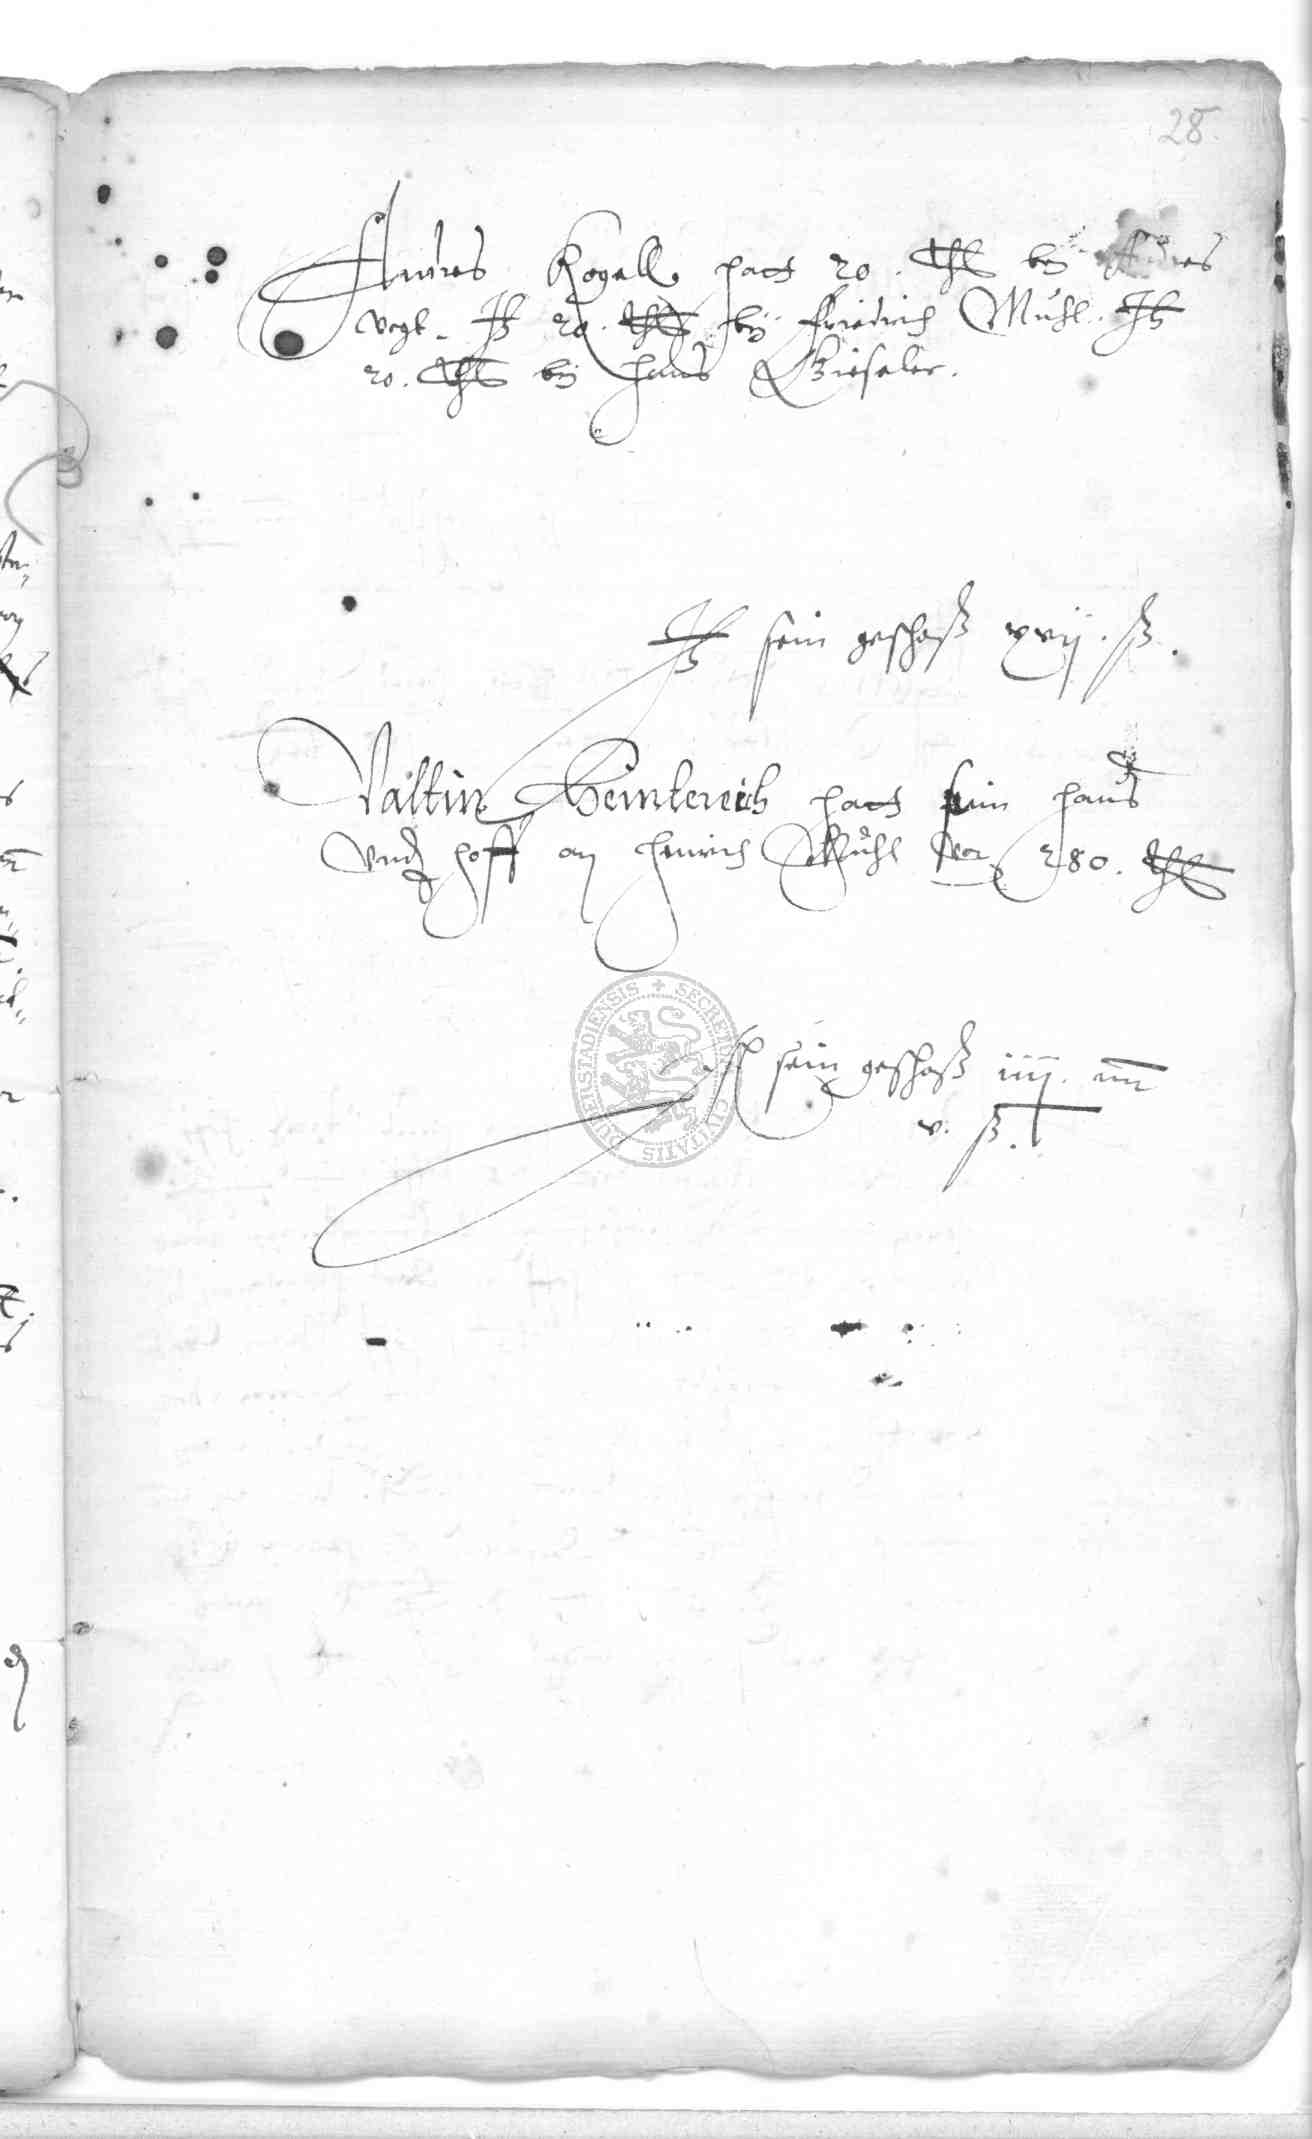 28.
Andres Kogell hatt 20. Thl bey Andres
Vogt. It 20. Thl bey Friedrich Mühl. It
20. Thl bey Hans Gieseler.
It sein geschoß xvij. ß.
Valtin Hemtereich hatt sein haus
Vnd hoff an Heinrich Mühl vor 280. Thl
sein geschoß iiij. mr
v. ß.
SECRETUM CIVITATIS DUDERSTADIENSIS